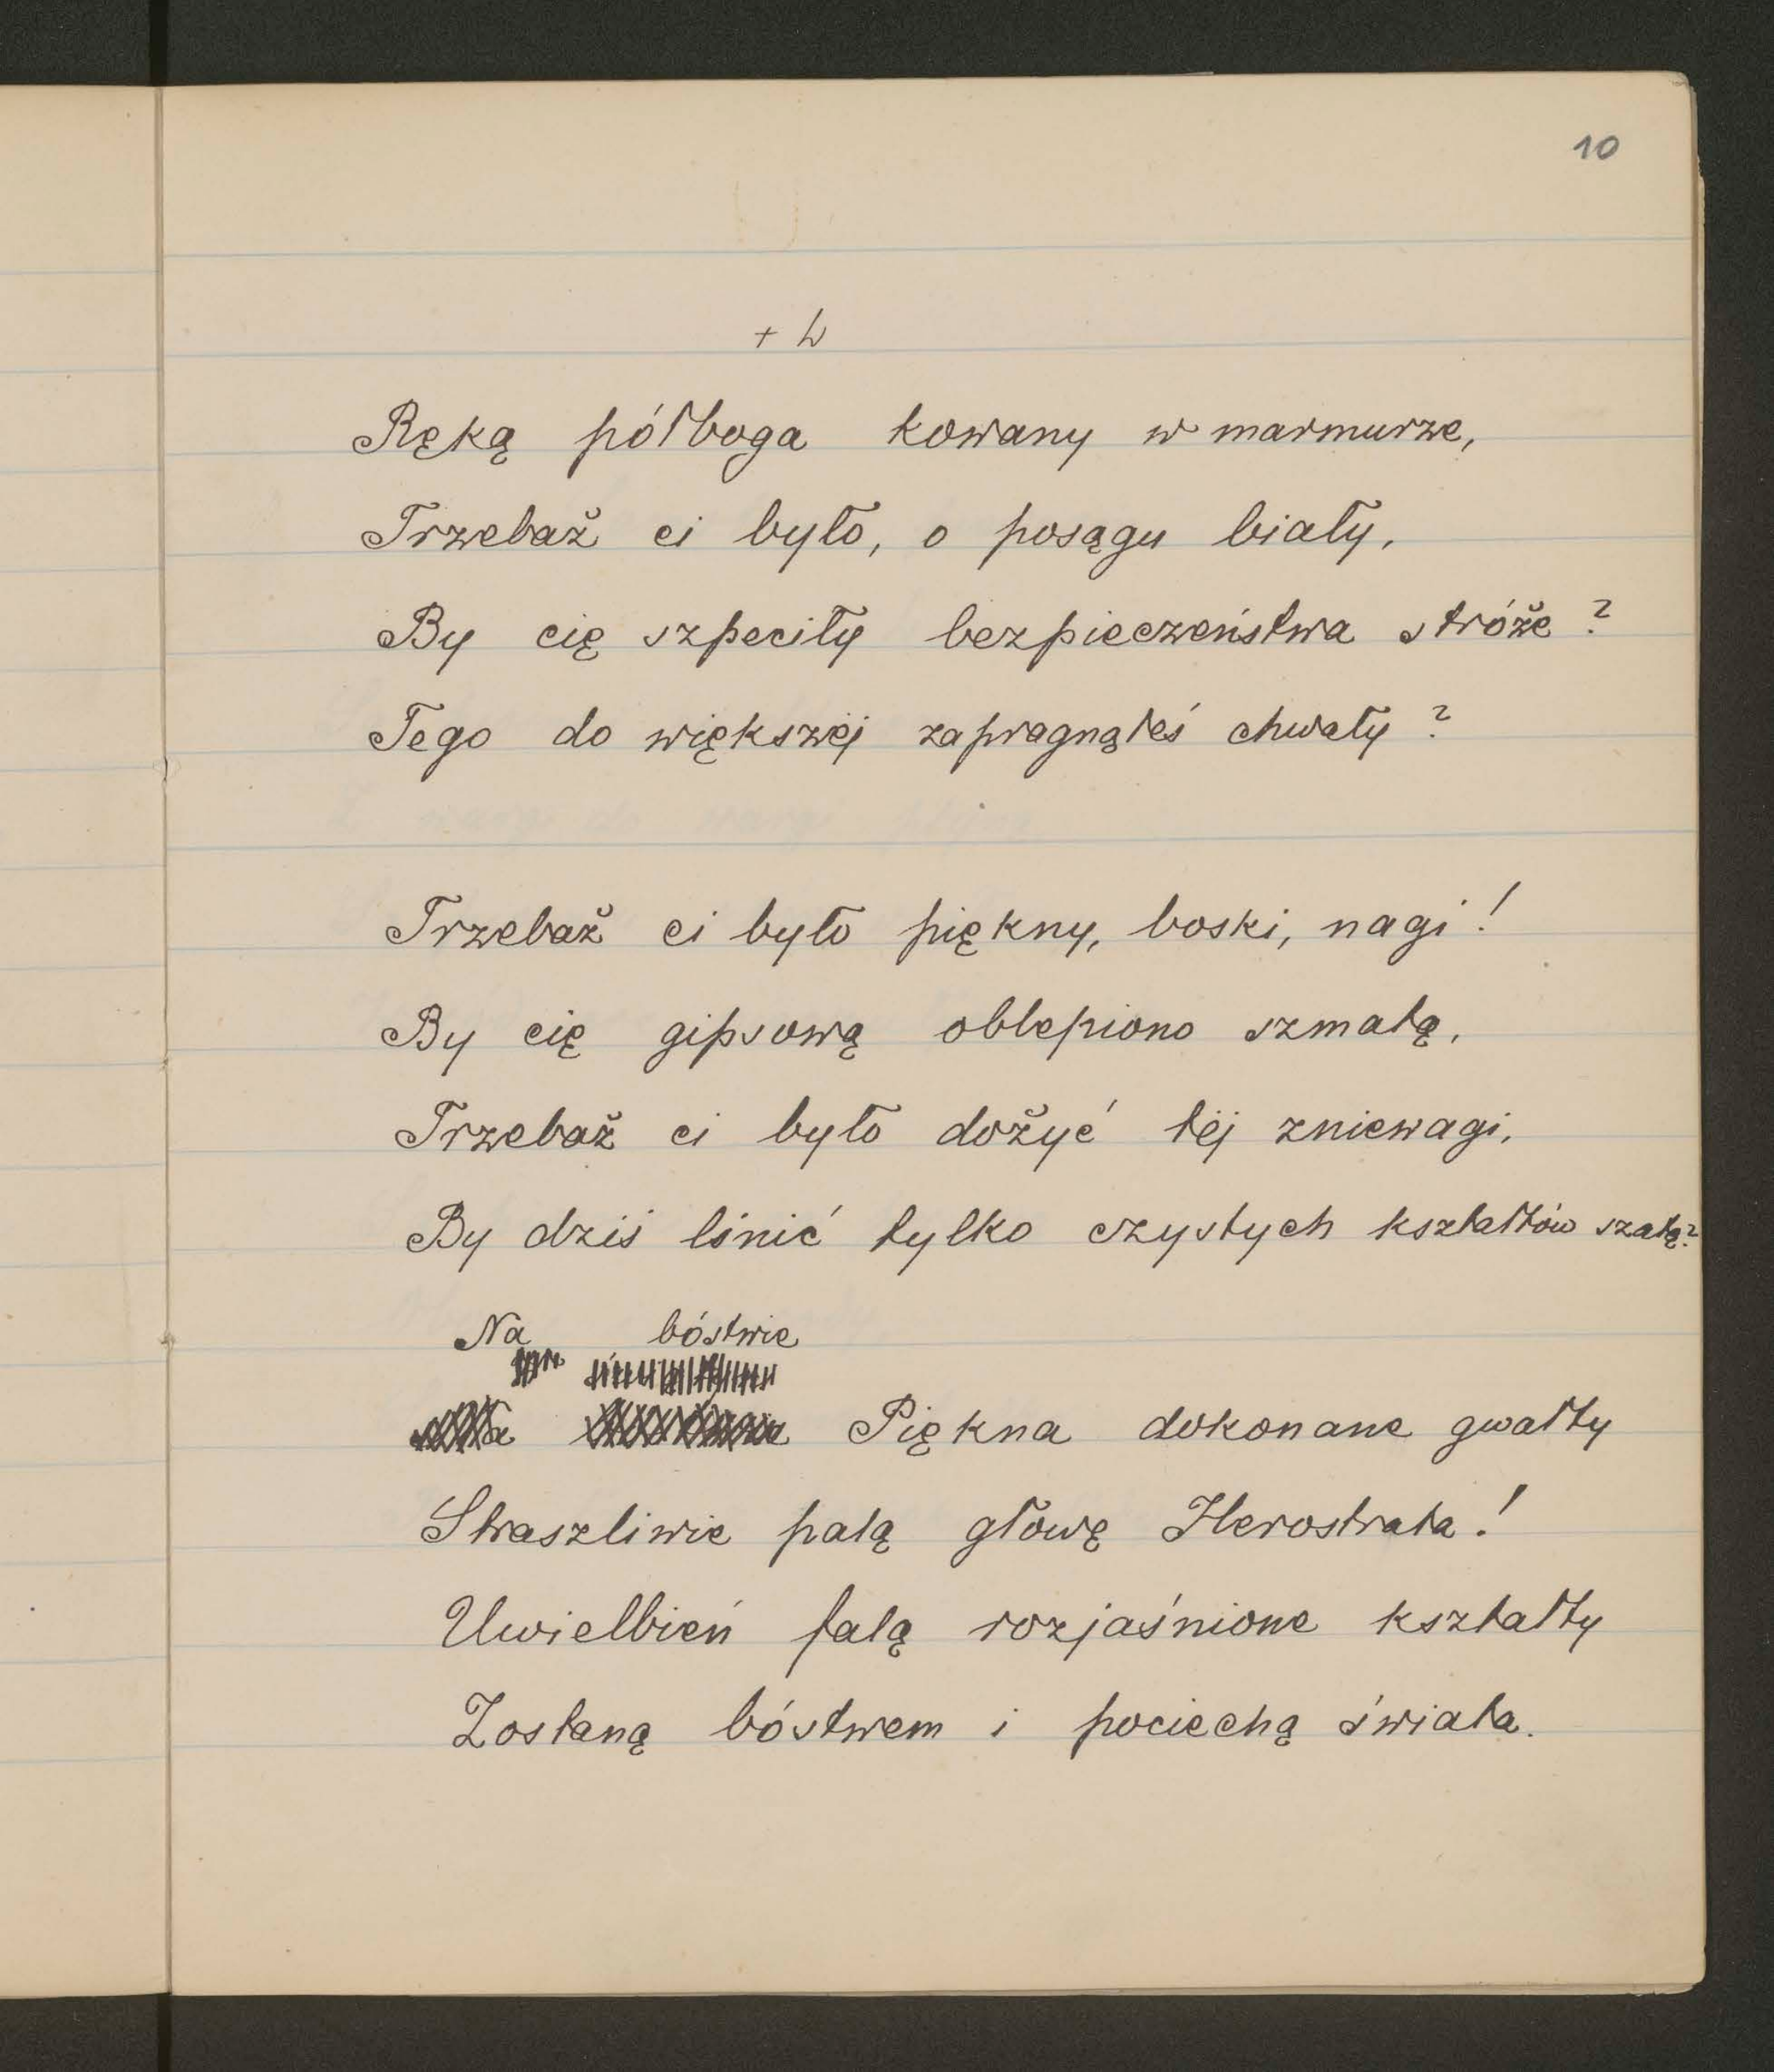 10
+ L
Ręką półboga kowany w marmurze,
Trzebaż ci było, o posągu biały,
By cię szpeciły bezpieczeństwa stróże?
Tego do większéj zapragnąłeś chwały?
Trzebaż ci było piękny, boski, nagi!
By cię gipsową oblepiono szmatą,
Trzebaż ci było dożyć téj zniewagi,
By dziś lśnić tylko czystych kształtów szatą?
Na bóstwie
Piękna dokonane gwałty
Straszliwie palą głowę Herostrata!
Uwielbień falą rozjaśnione kształty
Zostaną bóstwem i pociechą świata.